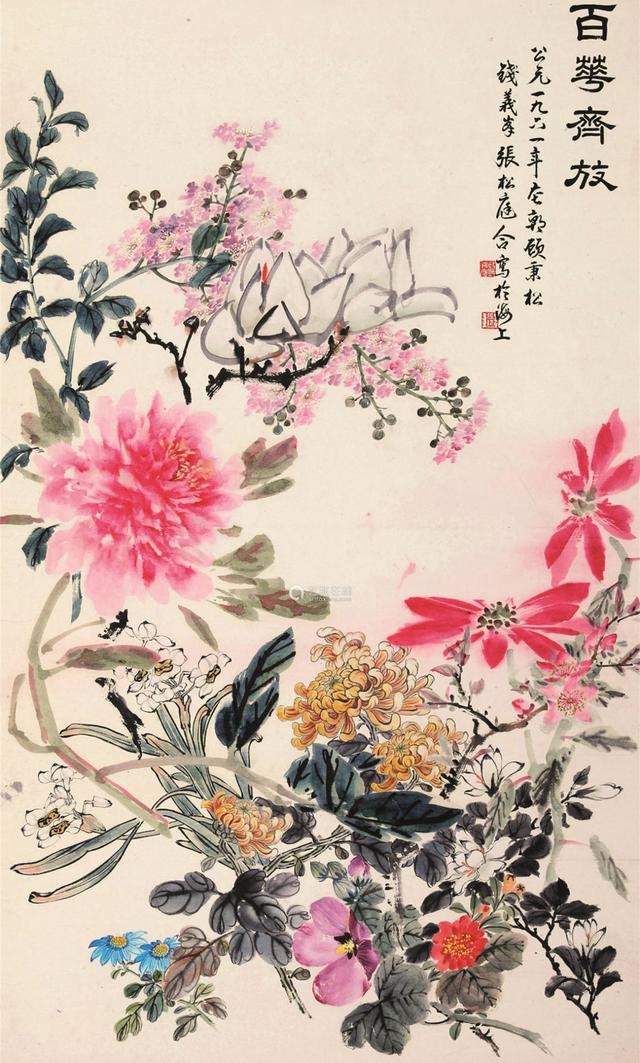 百華齊放
公元一九六一年左龍頋秉松
錢義峯張松庭合寫於海上